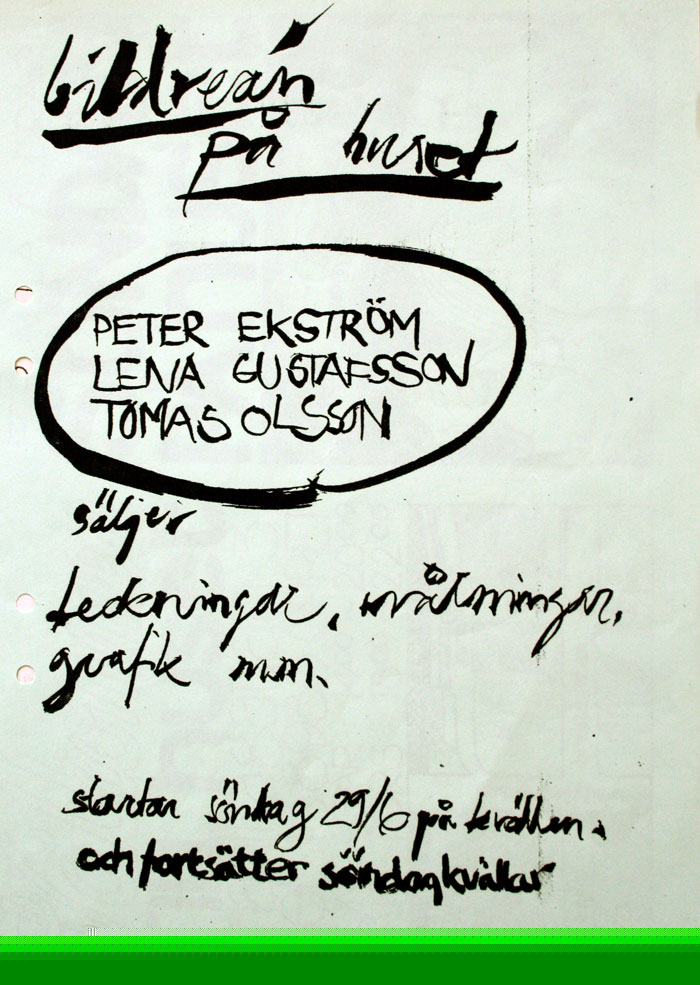 bildrean
på huset
PETER EKSTRÖM
LENA GUSTAFSSON
TOMAS OLSSON
säljer
teckningar, målningar,
grafik mm.
startar söndag 29/6 på kvällen.
och fortsätter söndagkvällar